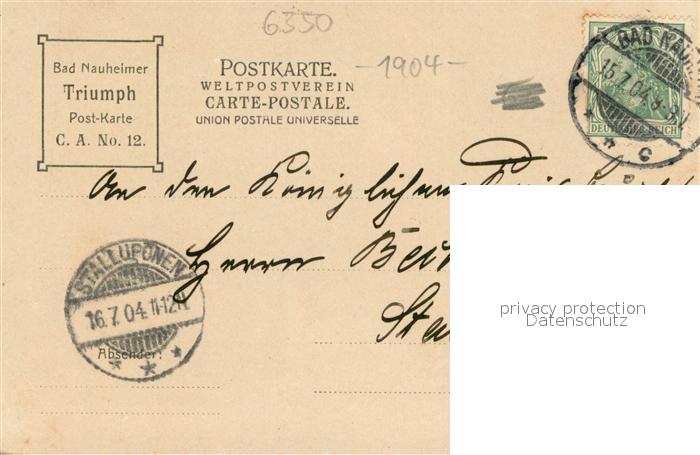 6350
-1904-
Bad Nauheimer
Triumph
Post-Karte
C. A. No. 12.
POSTKARTE.
WELTPOSTVEREIN
CARTE-POSTALE.
UNION POSTALE UNIVERSELLE
BAD NAUH
15.7.04.
DEUTSCHES REICH
An den Königlichen
Herrn
STALLUPÖNEN
16.7.04.11-12V.
Absender:
privacy protection
Datenschutz